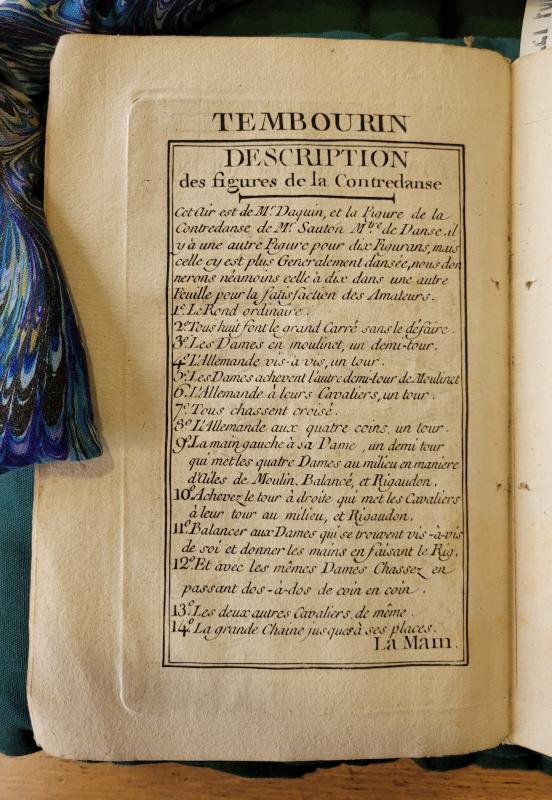 TEMBOURIN
DESCRIPTION
des figures de la Contredanse
Cet Air est de Mr. Daquin, et la Figure de la
Contredanse de Mr. Sauton Mtre de Danse. il
y à une autre Figure pour dix Figurans, mais
celle cy est plus Generalement dansée, nous don
nerons néamoins celle à dix dans une autre
Feuille pour la satisfaction des Amateurs.
1º. Le Rond ordinaire.
2º. Tous huit font le grand Carré sans le défaire.
3º. Les Dames en moulinet, un demi-tour.
4º. L'Allemande vis-à vis, un tour.
5º. Les Dames achevent l'autre demi-tour de Moulinet
6º. L'Allemande à leurs Cavaliers, un tour.
7º. Tous chassent croisé.
8º. L'Allemande aux quatre coins, un tour.
9º. La main gauche à sa Dame, un demi tour
qui met les quatre Dames au milieu en maniere
d'Ailes de Moulin. Balancé, et Rigaudon.
10º. Achevez le tour à droite qui met les Cavaliers
à leur tour au milieu, et Rigaudon.
11º. Balancer aux Dames qui se trouvent vis-à-vis
de soi et donner les mains en faisant le Rig.
12º. Et avec les mêmes Dames Chassez en
passant dos-à-dos de coin en coin.
13º. Les deux autres Cavaliers, de même.
14º. La grande Chaine jusques à ses places.
La Main.